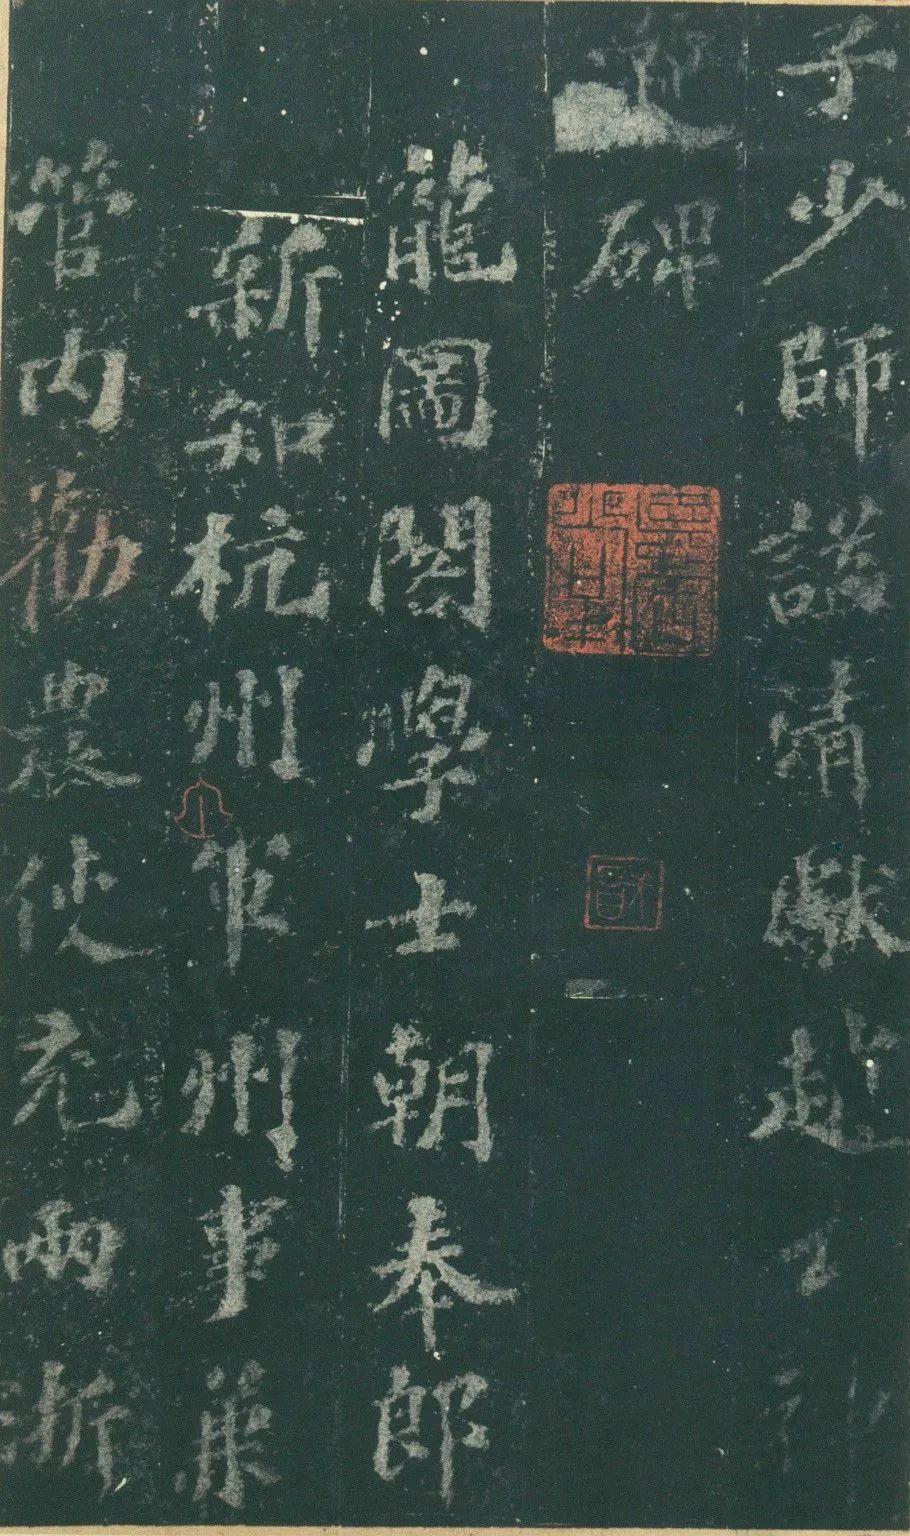 子少師諡清獻趙公神
道碑
龍圖閣學士朝奉郎
新知杭州軍州事兼
管内勸農使充兩浙